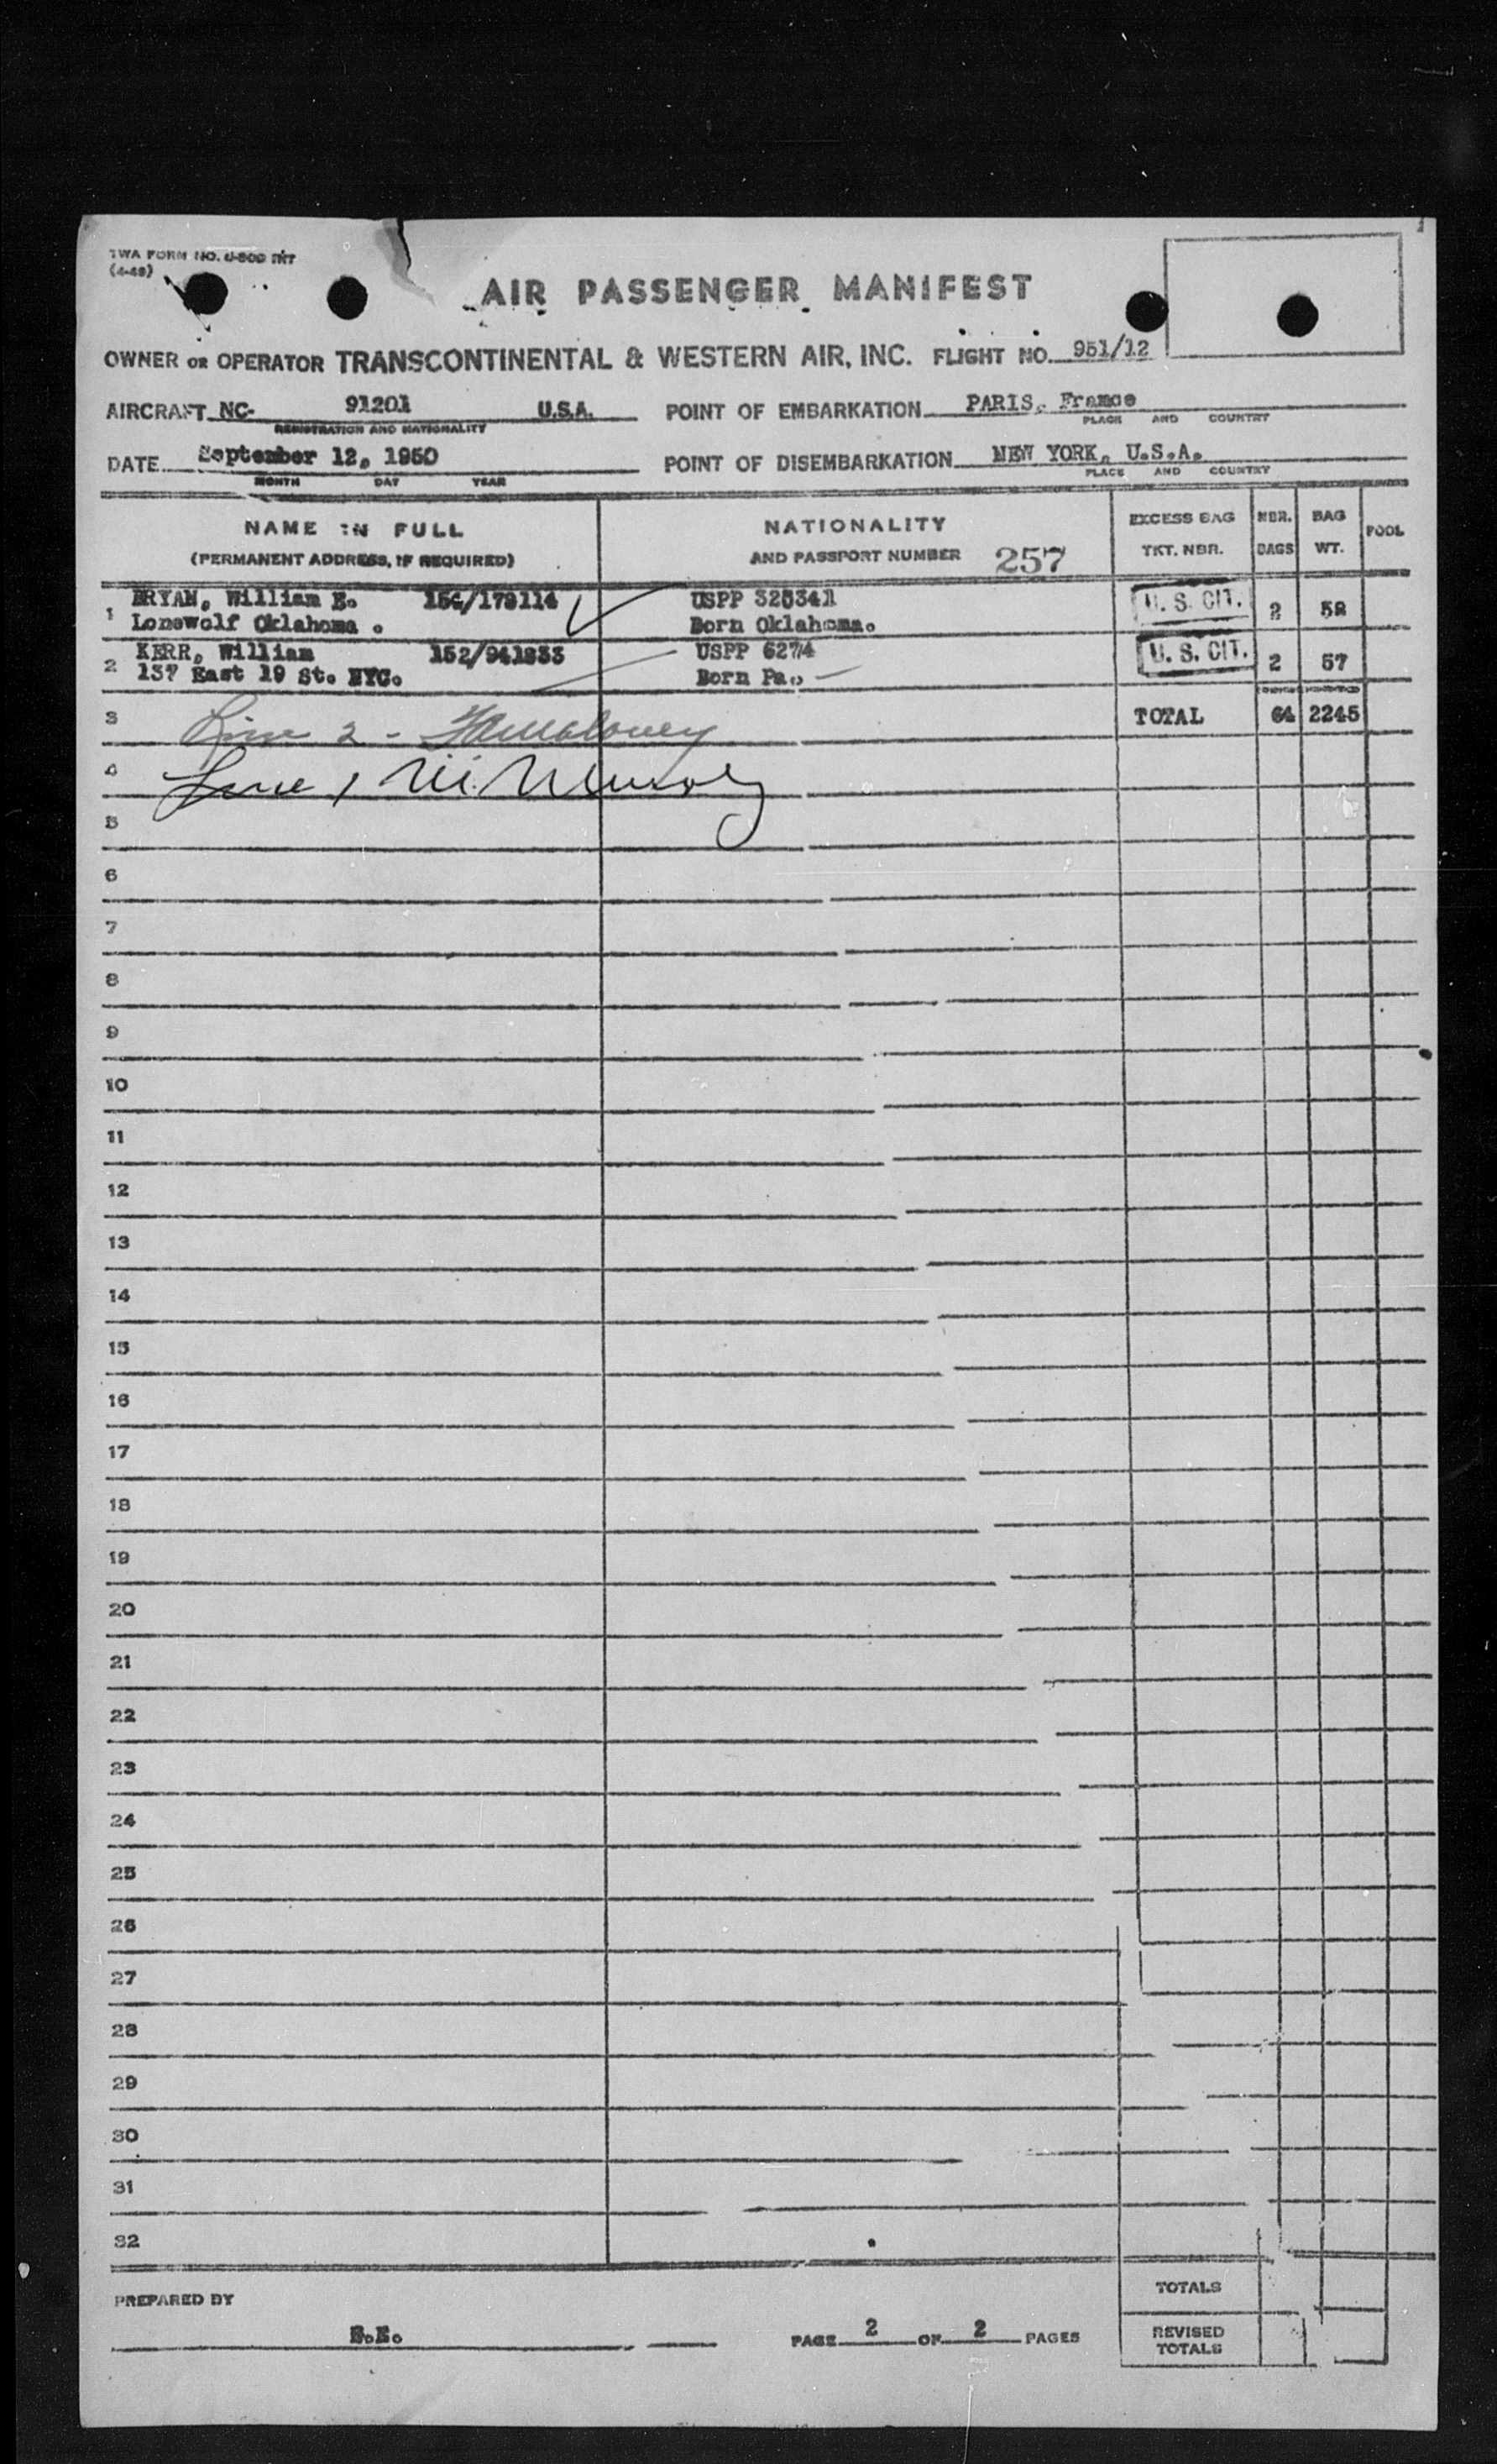 TWA FORM NO.
(4-49)
AIR PASSENGER MANIFEST
OWNER OR OPERATOR TRANSCONTINENTAL & WESTERN AIR, INC. FLIGHT NO. 951/12
AIRCRAFT NC- 91201 U.S.A. POINT OF EMBARKATION PARIS, France
REGISTRATION AND NATIONALITY PLACE AND COUNTRY
DATE September 12, 1950 POINT OF DISEMBARKATION NEW YORK, U.S.A.
MONTH DAY YEAR PLACE AND COUNTRY
NAME IN FULL NATIONALITY EXCESS BAG NBR. BAG POOL
(PERMANENT ADDRESS, IF REQUIRED) AND PASSPORT NUMBER 257 TKT. NBR. BAGS WT.
1 BRYAN, William E. USPP 325341 U. S. CIT. 2 58
Lonewolf Oklahoma . Born Oklahoma.
2 KERR, William 152/941833 USPP 6274 U. S. CIT. 2 57
137 East 19 St. NYC. Born Pa.
3 Line 2 - TOTAL 64 2245
4 Line 1
5
6
7
8
9
10
11
12
13
14
15
16
17
18
19
20
21
22
23
24
25
26
27
28
29
30
31
32
TOTALS
PREPARED BY
PAGE 2 OF 2 PAGES REVISED
TOTALS